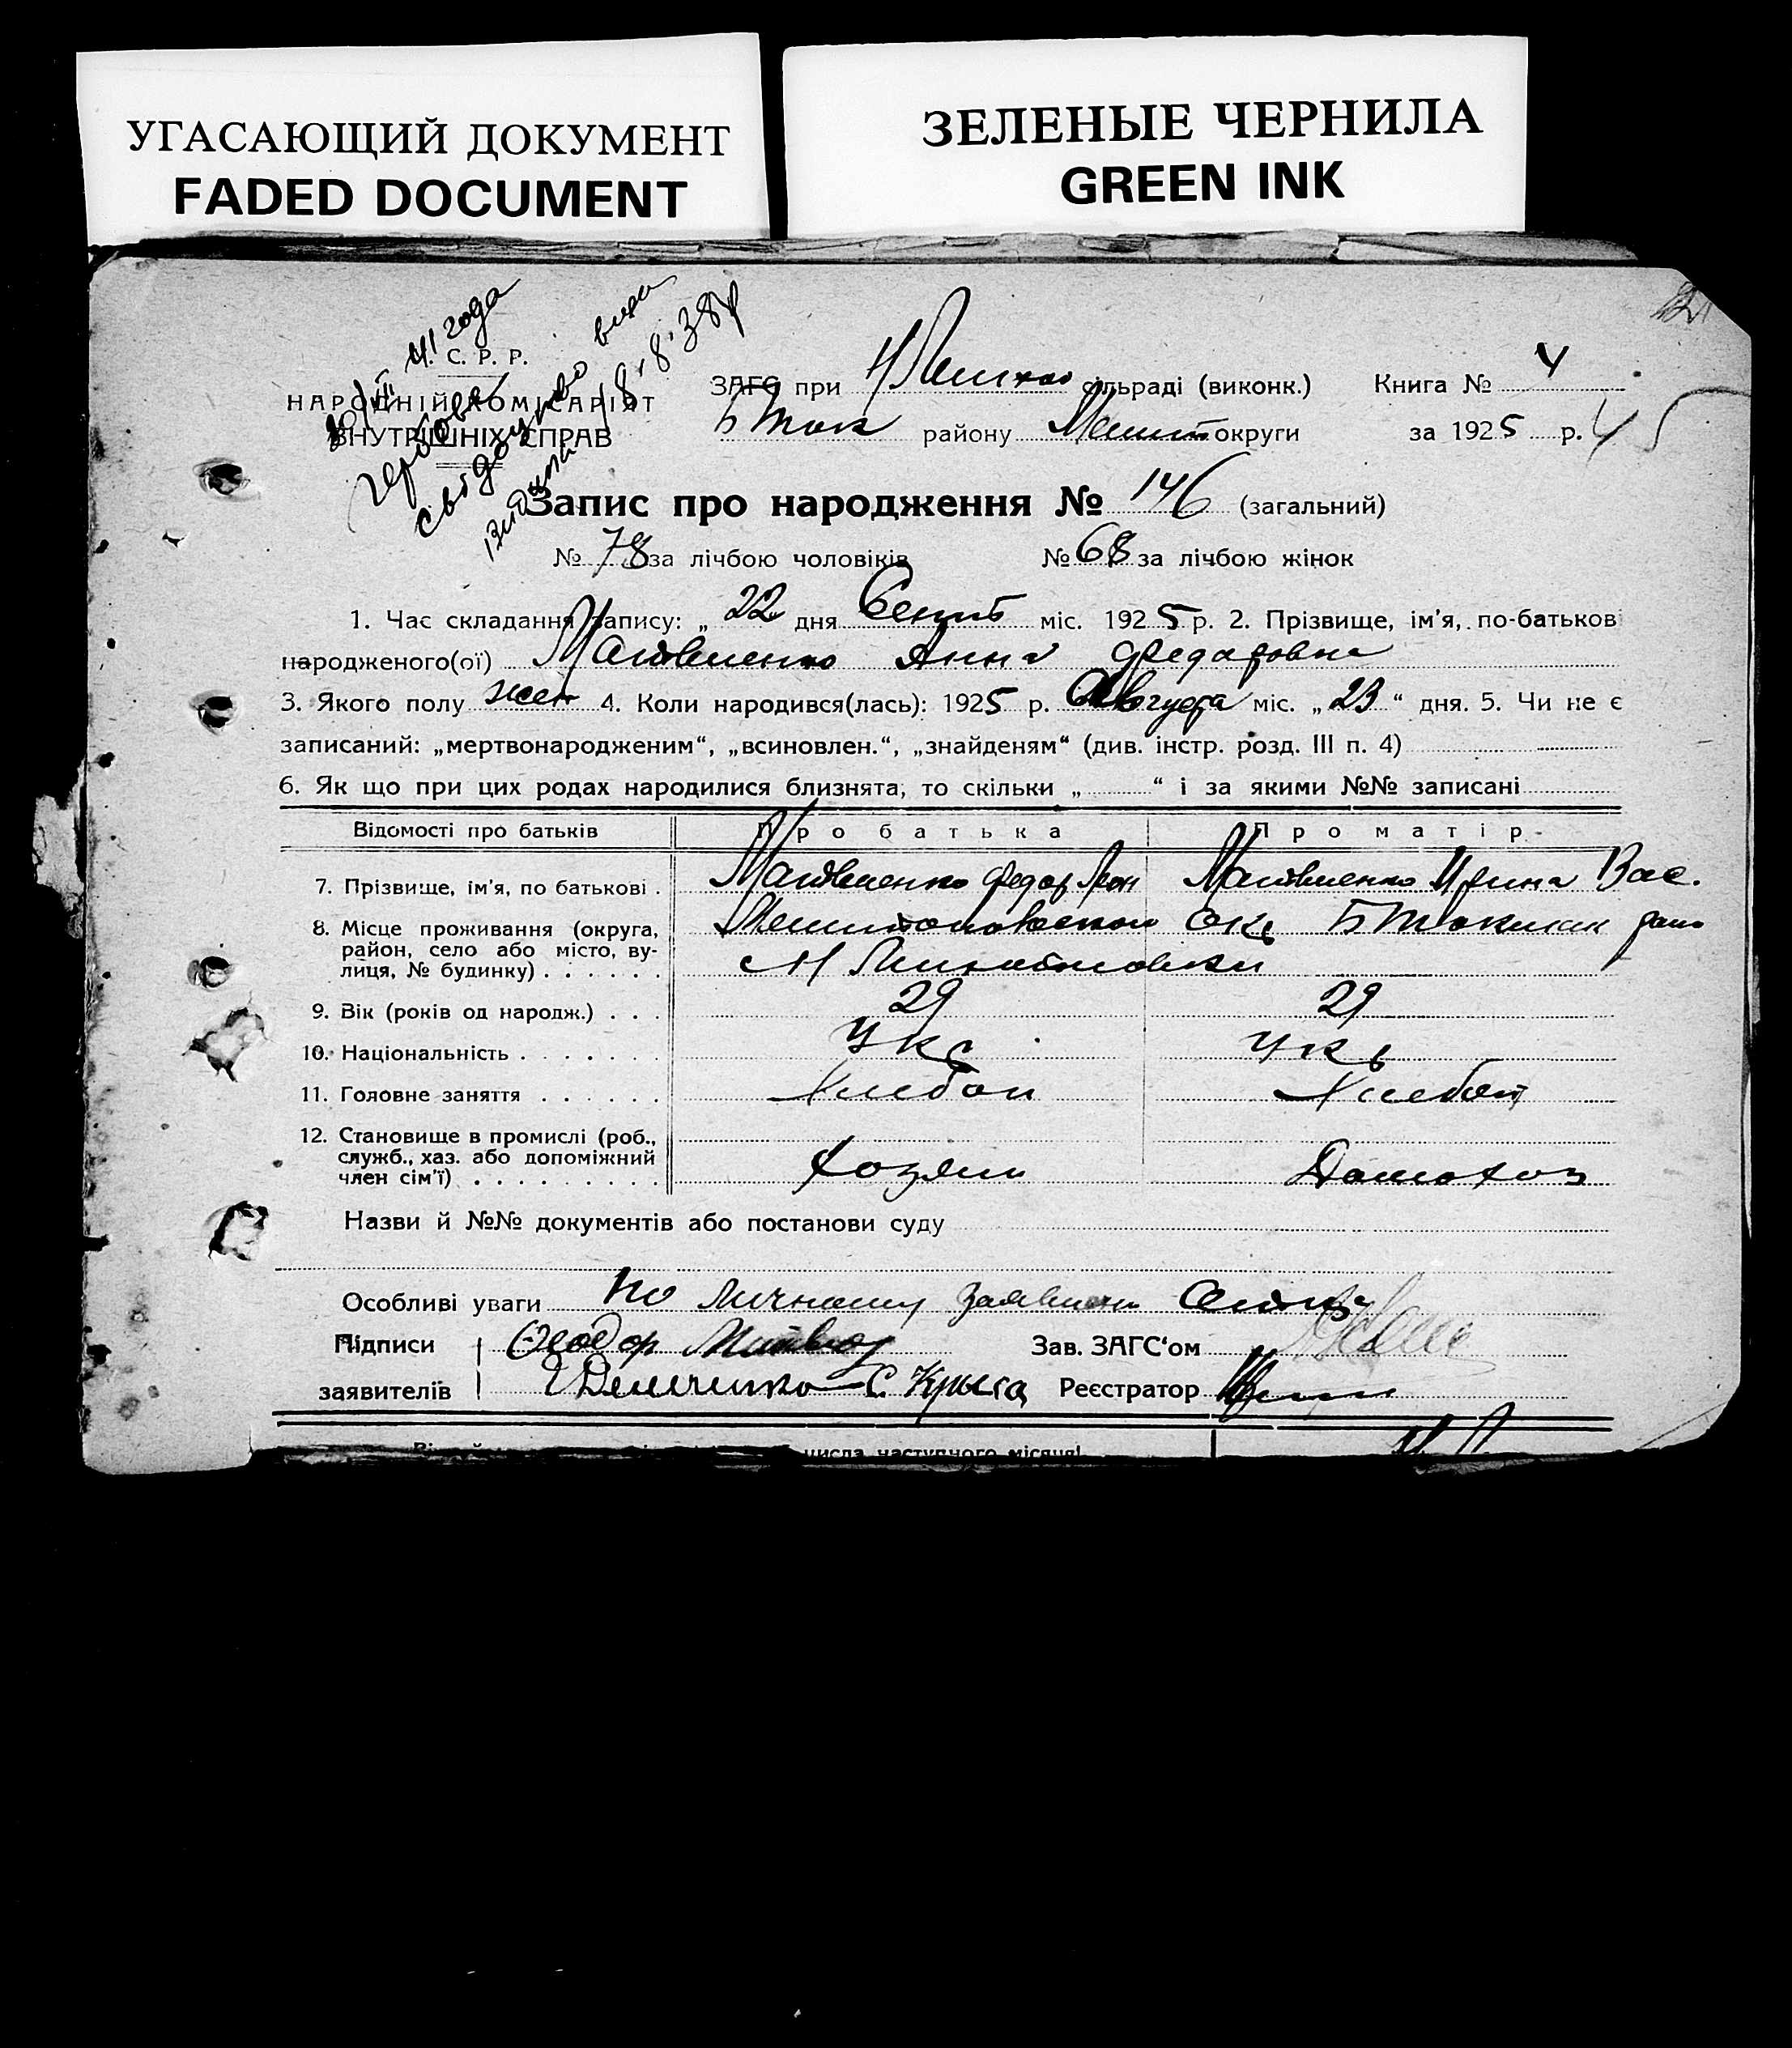 УГАСАЮЩИЙ ДОКУМЕНТ
FADED DOCUMENT
ЗЕЛЕНЫЕ ЧЕРНИЛА
GREEN INK
41 года
свідоцтво
18.8.38р
С. Р. Р.
НАРОДНІЙ КОМІСАРІЯТ
ВНУТРІШНІХ СПРАВ
ЗАГС при сільраді (виконк.) Книга № 4
Б Ток району Мелит округи за 1925 р. 45
Запис про народження № 146 (загальний)
№ 78 за лічбою чоловіків № 68 за лічбою жінок
1. Час складання запису: „ 22 дня Сент міс. 1925 р. 2. Прізвище, ім'я, по-батькові
народженого(ої) Матвиенко Анна Федоровна
3. Якого полу жен 4. Коли народився(лась): 1925 р. Августа міс. „ 23 “ дня. 5. Чи не є
записаний: „мертвонародженим“, „всиновлен.“, „знайденям“ (див. інстр. розд. III п. 4)
6. Як що при цих родах народилися близнята, то скільки „ “ і за якими №№ записані
Відомості про батьків Про батька Про матір
7. Прізвище, ім'я, по батькові . Матвиенко Федор Матвиенко Ирина Вас.
8. Місце проживання (округа, район, село або місто, вулиця, № будинку) . . . . . . Мелитопольской Окр Б Токмак
9. Вік (років од народж.) . . . 29 29
10. Національність . . . . . . . Укр Укр
11. Головне заняття . . . . . . Хлебоп Хлебоп
12. Становище в промислі (роб., служб., хаз. або допоміжний член сім'ї) . . . . . . . . . Хозяин Домохоз
Назви й №№ документів або постанови суду
Особливі уваги По личному заявлению
Підписи Феодор Зав. ЗАГС'ом
заявителів С. Крыса Реєстратор
числа наступного місяця!